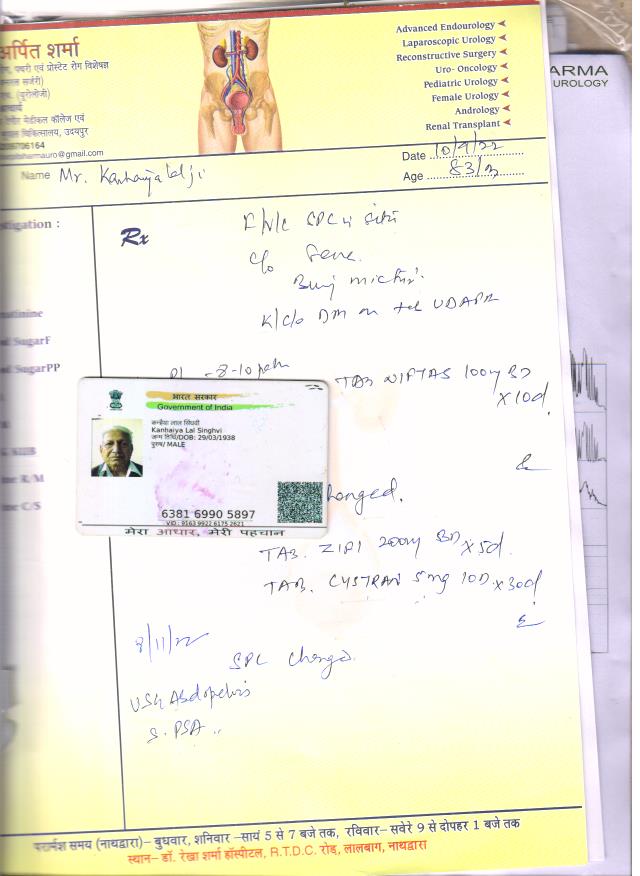 अर्पित शर्मा
पथरी एवं प्रोस्टेट रोग विशेषज्ञ
(यूरोलोजी)
मेडीकल कॉलेज एवं
चिकित्सालय, उदयपुर
@gmail.com
Advanced Endourology
Laparoscopic Urology
Reconstructive Surgery
Uro- Oncology
Pediatric Urology
Female Urology
Andrology
Renal Transplant
ARMA
UROLOGY
Date 10/9/22
Age 83/
Name Mr. Kanhaiyalal ji
stigation :
Rx
SPC
c/o Fever
K/c/o DM on UDAPA
SugarF
SugarPP
8-10
TAB NIFTAS 100mg BD
X 10d.
भारत सरकार
Government of India
कन्हैया लाल सिंघवी
Kanhaiya Lal Singhvi
जन्म तिथि/DOB: 29/03/1938
पुरुष/ MALE
6381 6990 5897
VID : 9163 9922 6175 2621
मेरा आधार, मेरी पहचान
R/M
C/S
hanged.
TAB. ZIPI 200mg BD x 5d.
TAB. CYSTRAN 5mg x 30d
8/11/22
SPC change.
USG Abdopelvis
S. PSA
परामर्श समय (नाथद्वारा)– बुधवार, शनिवार –सायं 5 से 7 बजे तक, रविवार– सवेरे 9 से दोपहर 1 बजे तक
स्थान– डॉ. रेखा शर्मा हॉस्पीटल, R.T.D.C. रोड़, लालबाग, नाथद्वारा